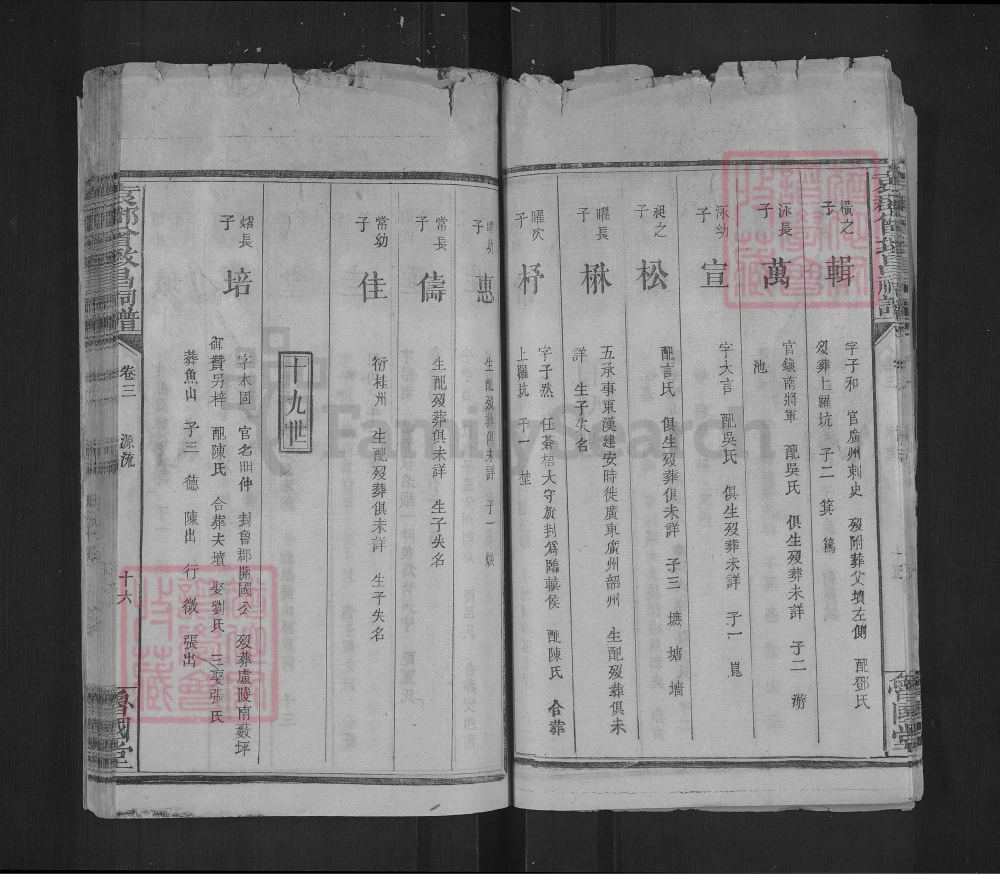 橫之子
輯
字子和 官廣州刺史 歿附葬父墳左側 配鄧氏
歿葬上羅坑 子二 箕 篤
泳長子
萬
官鎮南將軍 配吳氏 俱生歿葬未詳 子二 游
池
泳幼子
宣
字大言 配吳氏 俱生歿葬未詳 子一 崑
昶之子
松
配言氏 俱生歿葬俱未詳 子三 墉 塘 墻
曜長子
楙
五承事東漢建安時徙廣東廣州韶州 生配歿葬俱未
詳 生子失名
曜次子
杼
字子然 任蒼梧大守 封為臨 侯 配陳氏 合葬
上羅坑 子一 埜
幼子
惠
生配歿葬俱未詳 子一
常長子
儔
生配歿葬俱未詳 生子失名
常幼子
佳
衍桂州 生配歿葬俱未詳 生子失名
十九世
熺長子
培
字本固 官名 仲 封魯郡開國公 歿葬盧陵南薮坪
御贊另梓 配陳氏 合葬夫墳 娶劉氏 三娶張氏
葬魚山 子三 德 陳出 行 徵 張出
卷三 源流 十六
魯國堂
Family Search